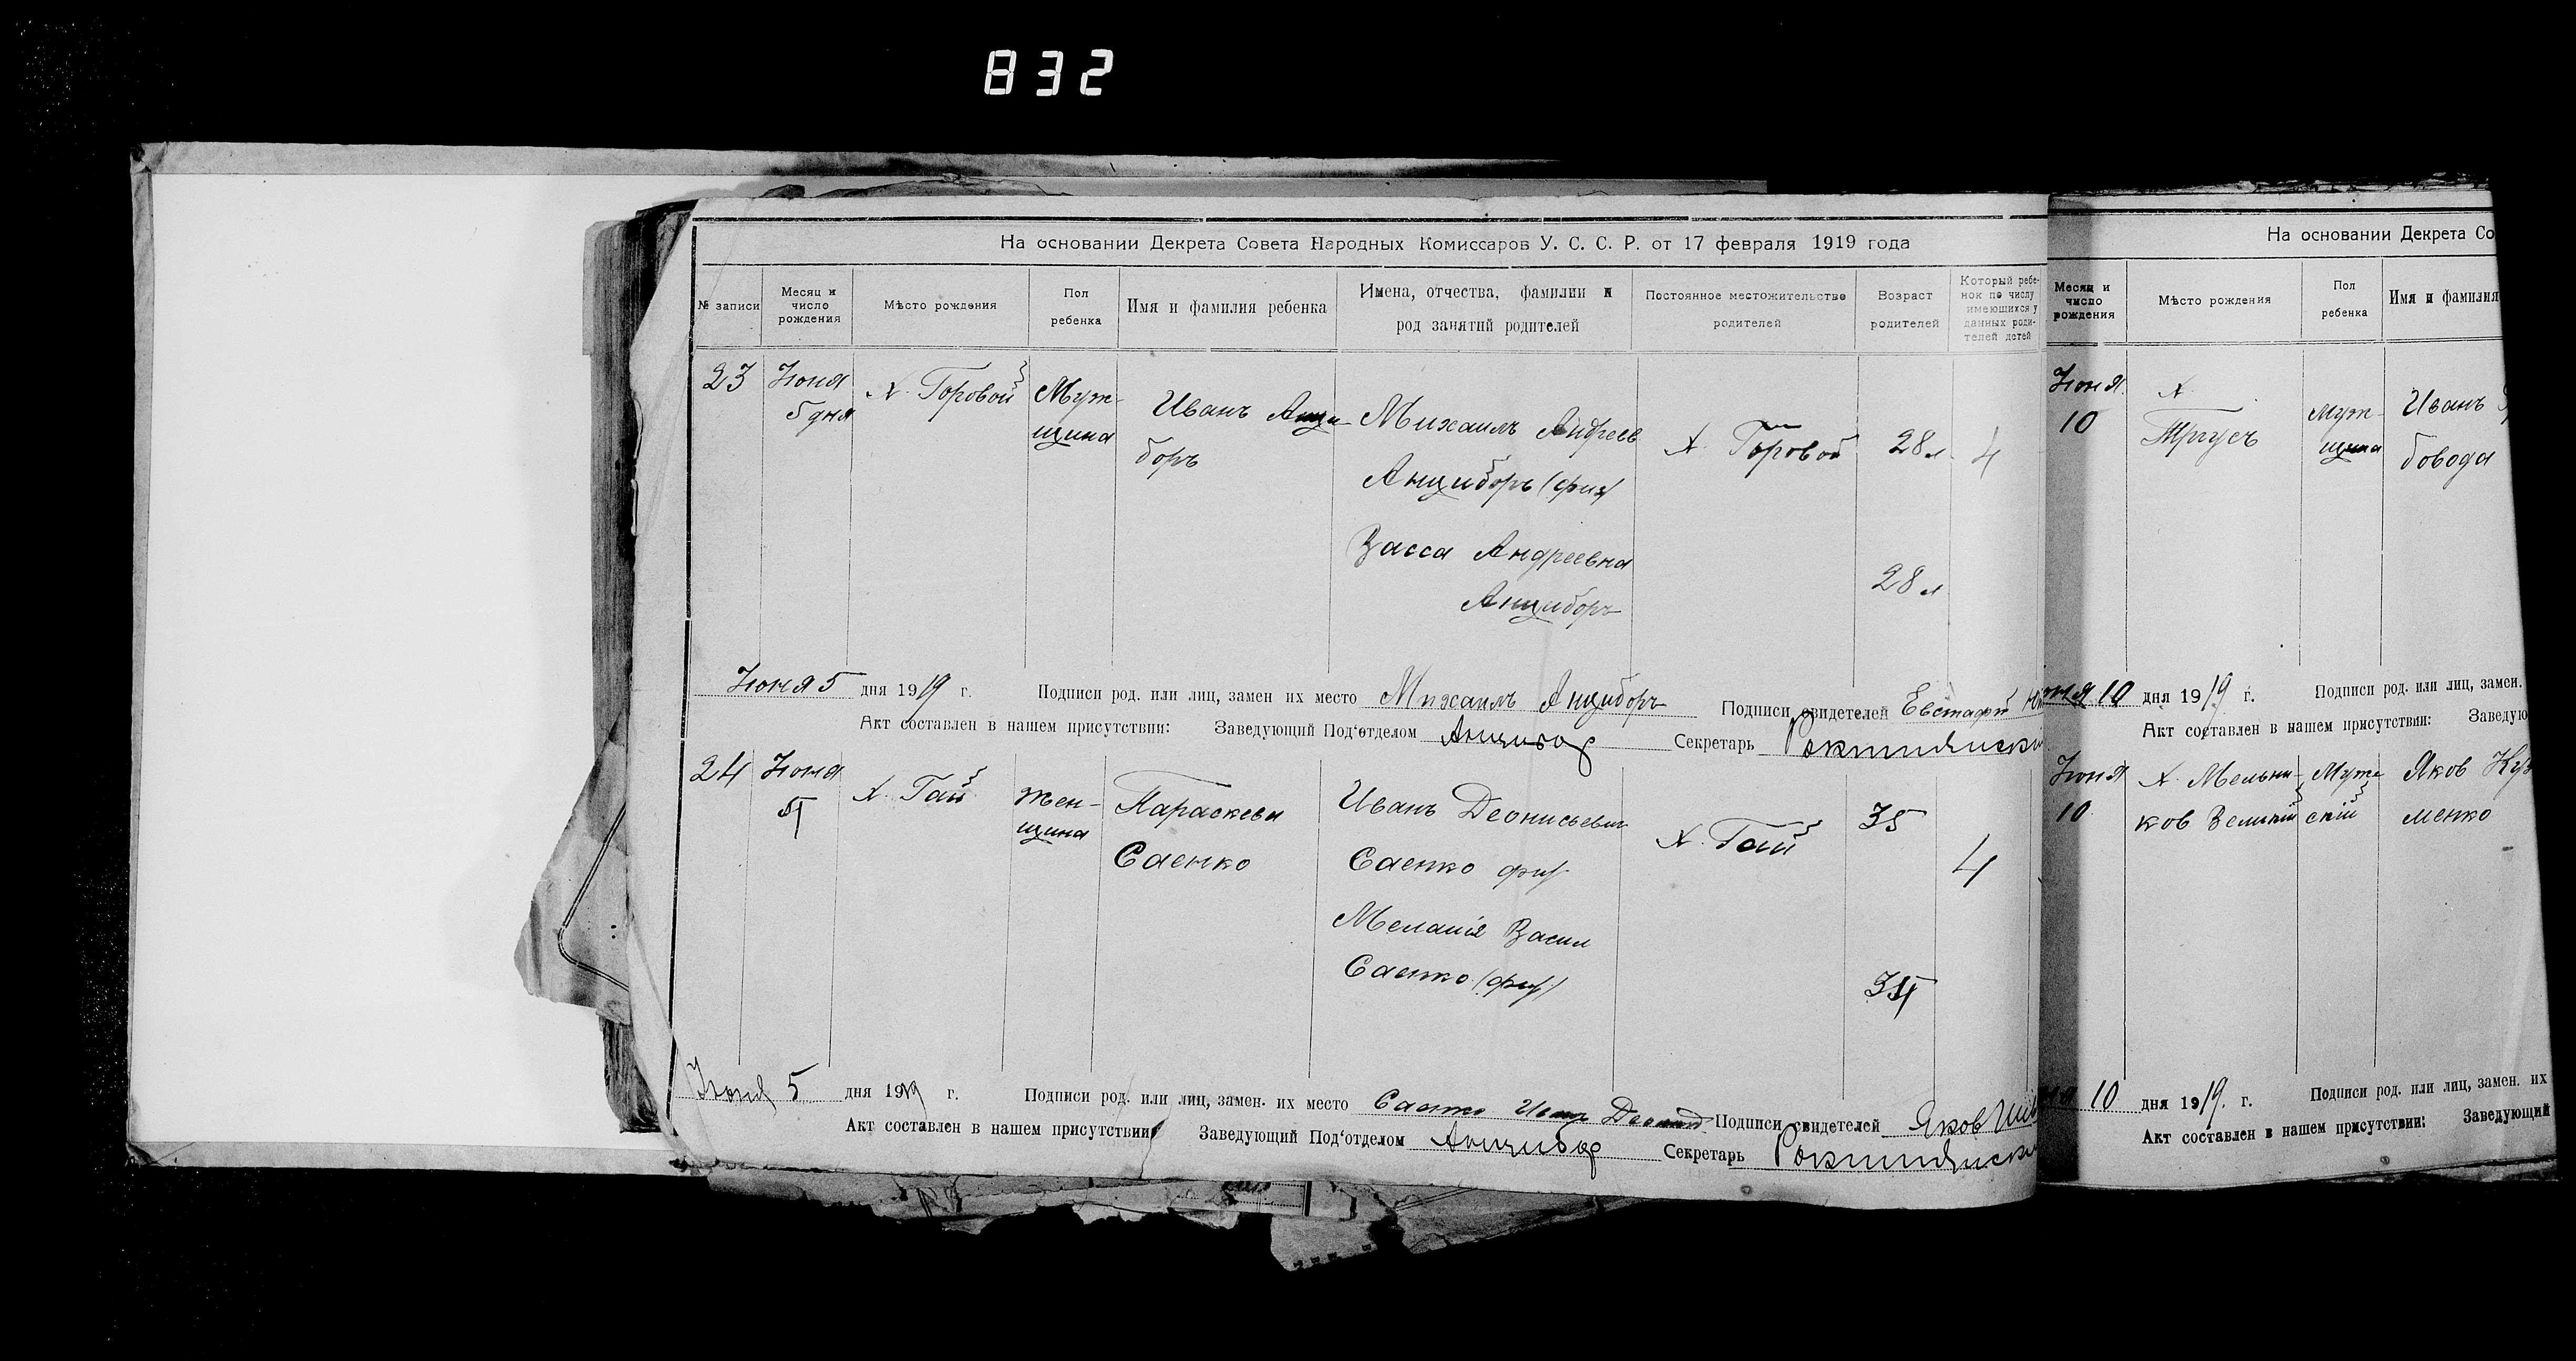 832
На основании Декрета Совета Народных Комиссаров У. С. С. Р. от 17 февраля 1919 года
№ записи
Месяц и
число
рождения
Мѣсто рождения
Пол
ребенка
Имя и фамилия ребенка
Имена, отчества, фамилии и
род занятий родителей
Постоянное местожительство
родителей
Возраст
родителей
Который ребе-
нок по числу
имеющихся у
данных роди-
телей детей
23
Іюня
5 дня
х. Горовой
Муж-
щина
Иванъ Анци-
боръ
Михаилъ Андреев
Анциборъ (
Васса Андреевна
Анциборъ
х. Горовой
28 л
28 л
4
Іюня 5 дня 1919 г. Подписи род. или лиц, замен их место Михаилъ Анциборъ Подписи свидетелей Евстафій
Акт составлен в нашем присутствии: Заведующий Под‘отделом Анцибор Секретарь
24
Іюня
5
х. Гай
Жен-
щина
Параскева
Саенко
Иванъ Деонисьевич
Саенко
Меланія Васил
Саенко
х. Гай
35
35
4
Іюня 5 дня 1919 г. Подписи род. или лиц, замен. их место Саенко Иван Подписи свидетелей Яков
Акт составлен в нашем присутствии: Заведующий Под‘отделом Анцибор Секретарь
На основании Декрета Со
Месяц и
число
рождения
Мѣсто рождения
Пол
ребенка
Имя и фамилия
Іюня
10
х.
Муж-
щина
Иванъ
бовода
10 дня 1919 г. Подписи род. или лиц, замен.
Акт составлен в нашем присутствии: Заведую
Іюня
10
х. Мельни-
ков Великій
Муж-
скій
Яков Куз
менко
10 дня 1919. г. Подписи род. или лиц, замен. их
Акт составлен в нашем присутствии: Заведующий